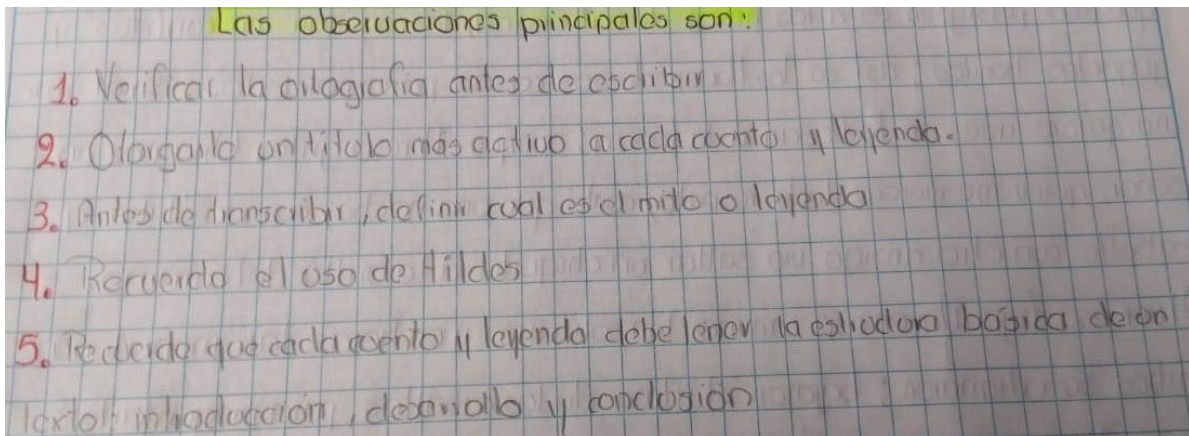 Las observaciones principales son:
1. Verificar la ortografia antes de escribir
2. Otorgarle un titulo más activo a cada cuento y leyenda.
3. Antes de transcribir, definir cual es el mito o leyenda
4. Recuerda el uso de tildes
5. Recuerda que cada cuento y leyenda debe tener la estructura básica de un
texto: introducción, desarrollo y conclusión